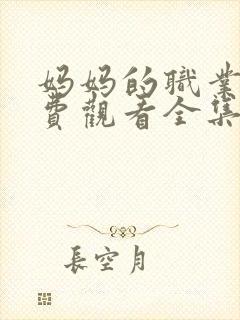 妈妈的職業
費觀看全集
長空月